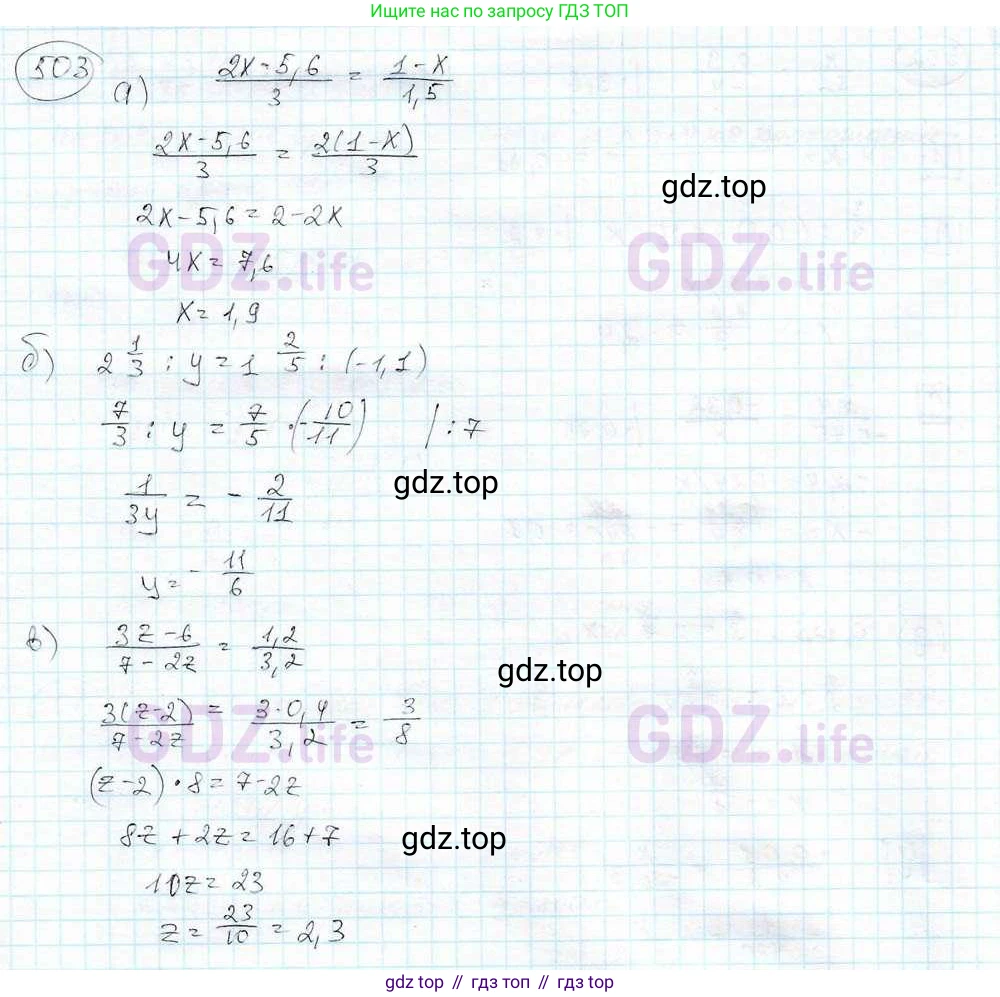 Ищите по запросу ГДЗ ТОП
503 а) (2x-5,6)/3 = (1-x)/1,5
(2x-5,6)/3 = 2(1-x)/3
gdz.top
2x-5,6=2-2x
GDZ.life GDZ.life
4x=7,6
x=1,9
б) 2 1/3 : y = 1 2/5 : (-1,1)
7/3 : y = 7/5 · (-10/11) | : 7
gdz.top
1/3y = - 2/11
y = - 11/6
в) (3z-6)/(7-2z) = 1,2/3,2
gdz.top
3(z-2)/(7-2z) = 3·0,4/3,2 = 3/8
GDZ.life GDZ.life
(z-2)·8=7-2z
8z+2z=16+7
gdz.top
10z=23
z = 23/10 = 2,3
gdz top // гдз топ // gdz.top